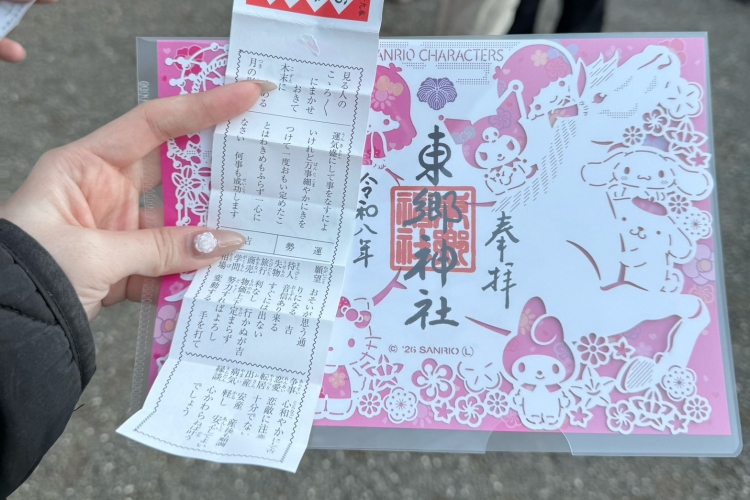 見る人の
こゝろ〳〵
にまかせ
おきて
木末に
月の
運気盛にして事をなすによ
いけれど万事細やかに気を
つけて一度おもい定めたこ
とはわきめもふらず一心に
なさい 何事も成功します
運
勢
吉
願望 おそいが思う通
りになる 吉
待人 音信あり 来る
失物 すぐに出ない
旅行 利なし 行かぬが吉
商売 物価上下定まらず
学問 努力すればよろし
相場 変動する 手を打て
争事 心和やかに
恋愛 恋敵に注意
転居 十分でない
出産 安産
病気 軽し
縁談 心かわらねば
でしょう
SANRIO CHARACTERS
奉拝
東郷神社
令和八年
© '26 SANRIO (L)